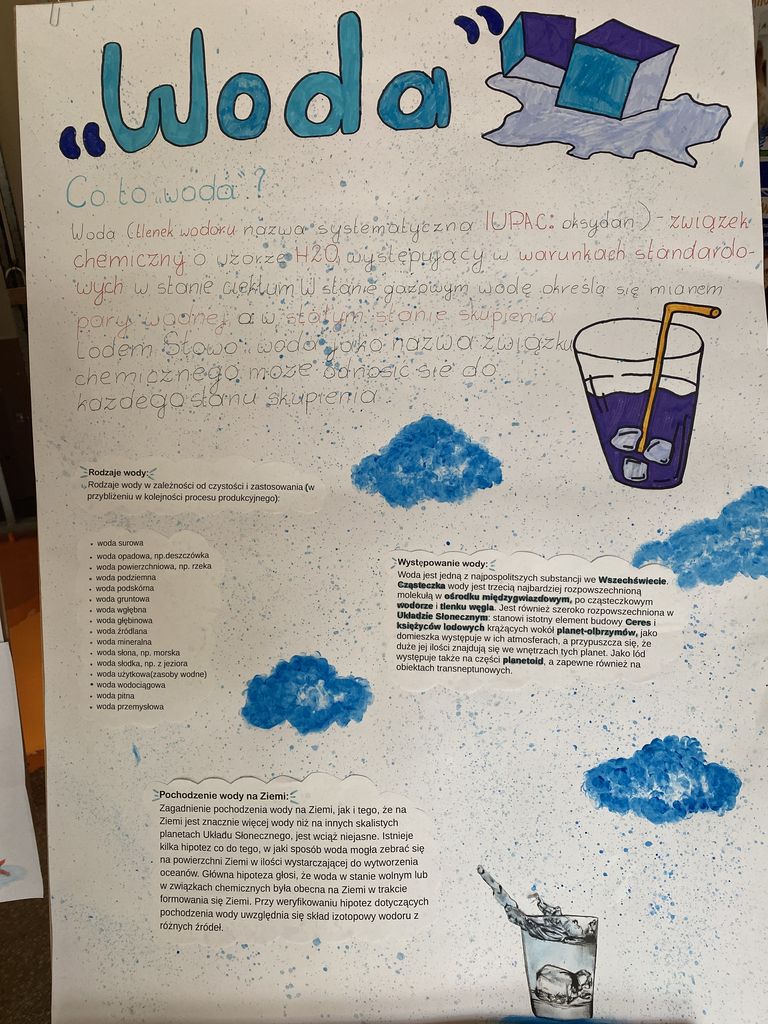 „Woda”
Co to „woda”?
Woda (tlenek wodoru nazwa systematyczna IUPAC: oksydan) - związek
chemiczny o wzorze H2O, występujący w warunkach standardo-
wych w stanie ciekłym. W stanie gazowym wodę określa się mianem
pary wodnej, a w stałym stanie skupienia
lodem. Słowo woda jako nazwa związku
chemicznego może odnosić się do
każdego stanu skupienia.
Rodzaje wody:
Rodzaje wody w zależności od czystości i zastosowania (w
przybliżeniu w kolejności procesu produkcyjnego):
• woda surowa
• woda opadowa, np.deszczówka
• woda powierzchniowa, np. rzeka
• woda podziemna
• woda podskórna
• woda gruntowa
• woda wgłębna
• woda głębinowa
• woda źródlana
• woda mineralna
• woda słona, np. morska
• woda słodka, np. z jeziora
• woda użytkowa(zasoby wodne)
• woda wodociągowa
• woda pitna
• woda przemysłowa
Występowanie wody:
Woda jest jedną z najpospolitszych substancji we Wszechświecie.
Cząsteczka wody jest trzecią najbardziej rozpowszechnioną
molekułą w ośrodku międzygwiazdowym, po cząsteczkowym
wodorze i tlenku węgla. Jest również szeroko rozpowszechniona w
Układzie Słonecznym: stanowi istotny element budowy Ceres i
księżyców lodowych krążących wokół planet-olbrzymów, jako
domieszka występuje w ich atmosferach, a przypuszcza się, że
duże jej ilości znajdują się we wnętrzach tych planet. Jako lód
występuje także na części planetoid, a zapewne również na
obiektach transneptunowych.
Pochodzenie wody na Ziemi:
Zagadnienie pochodzenia wody na Ziemi, jak i tego, że na
Ziemi jest znacznie więcej wody niż na innych skalistych
planetach Układu Słonecznego, jest wciąż niejasne. Istnieje
kilka hipotez co do tego, w jaki sposób woda mogła zebrać się
na powierzchni Ziemi w ilości wystarczającej do wytworzenia
oceanów. Główna hipoteza głosi, że woda w stanie wolnym lub
w związkach chemicznych była obecna na Ziemi w trakcie
formowania się Ziemi. Przy weryfikowaniu hipotez dotyczących
pochodzenia wody uwzględnia się skład izotopowy wodoru z
różnych źródeł.